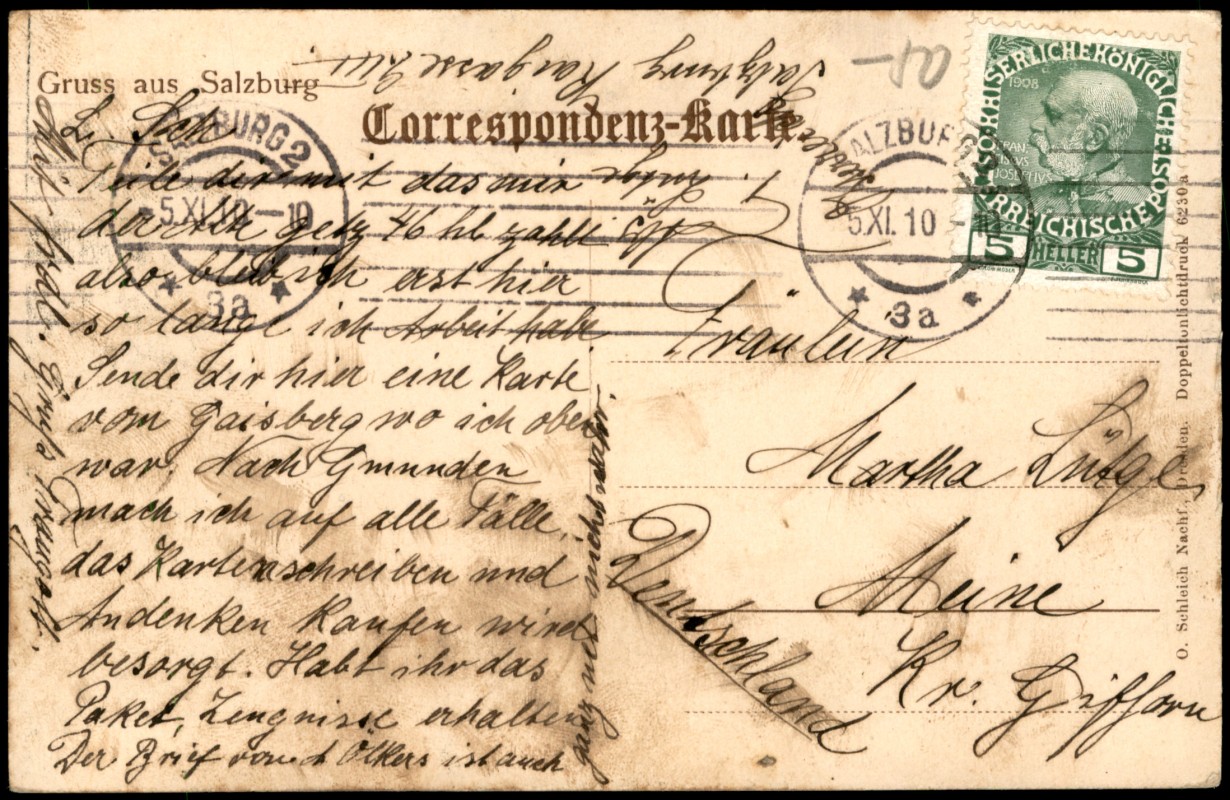 Gruss aus Salzburg
Correspondenz-Karte
Teile dir mit das mir
der Alte getz 46 hl zahlt
also bleib ich erst hier
so lange ich Arbeit habe
Sende dir hier eine Karte
vom Gaisberg wo ich oben
war. Nach Gmunden
mach ich auf alle Fälle,
das Kartenschreiben und
Andenken kaufen wird
besorgt. Habt ihr das
Paket, Zeugnisse erhalten
Der Brief von d Ölkers ist auch
ganz nett
Mit frdl. Gruß Traugott.
Salzburg
SALZBURG 2
5.XI.10
3a
SALZBURG
5.XI.10
3a
KAISERLICHE KÖNIGLICHE ÖSTERREICHISCHE POST
1908
5 HELLER 5
Fräulein
Martha Lütge
Meine
Kr. Gifhorn
Deutschland
O. Schleich Nachf., Dresden. Doppeltonlichtdruck 6230a